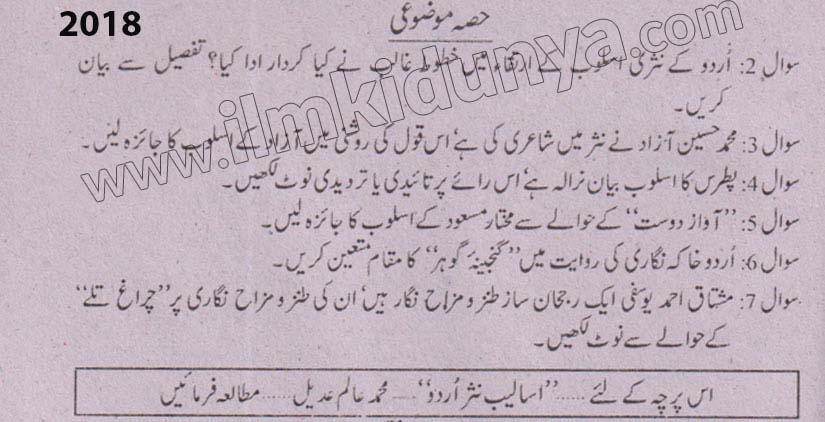 2018
حصہ موضوعی
سوال 2: اُردو کے نثری اسلوب کے ارتقاء میں خطوط غالب نے کیا کردار ادا کیا؟ تفصیل سے بیان
کریں۔
سوال 3: محمد حسین آزاد نے نثر میں شاعری کی ہے، اس قول کی روشنی میں آزاد کے اسلوب کا جائزہ لیں۔
سوال 4: پطرس کا اسلوب بیان نرالہ ہے، اس رائے پر تائیدی یا تردیدی نوٹ لکھیں۔
سوال 5: ”آواز دوست“ کے حوالے سے مختار مسعود کے اسلوب کا جائزہ لیں۔
سوال 6: اُردو خاکہ نگاری کی روایت میں ”گنجینۂ گوہر“ کا مقام متعین کریں۔
سوال 7: مشتاق احمد یوسفی ایک رجحان ساز طنز و مزاح نگار ہیں، ان کی طنز و مزاح نگاری پر ”چراغ تلے“
کے حوالے سے نوٹ لکھیں۔
اس پرچہ کے لئے ..... ”اسالیب نثر اُردو“ ..... محمد عالم عدیل ..... مطالعہ فرمائیں
www.ilmkidunya.com